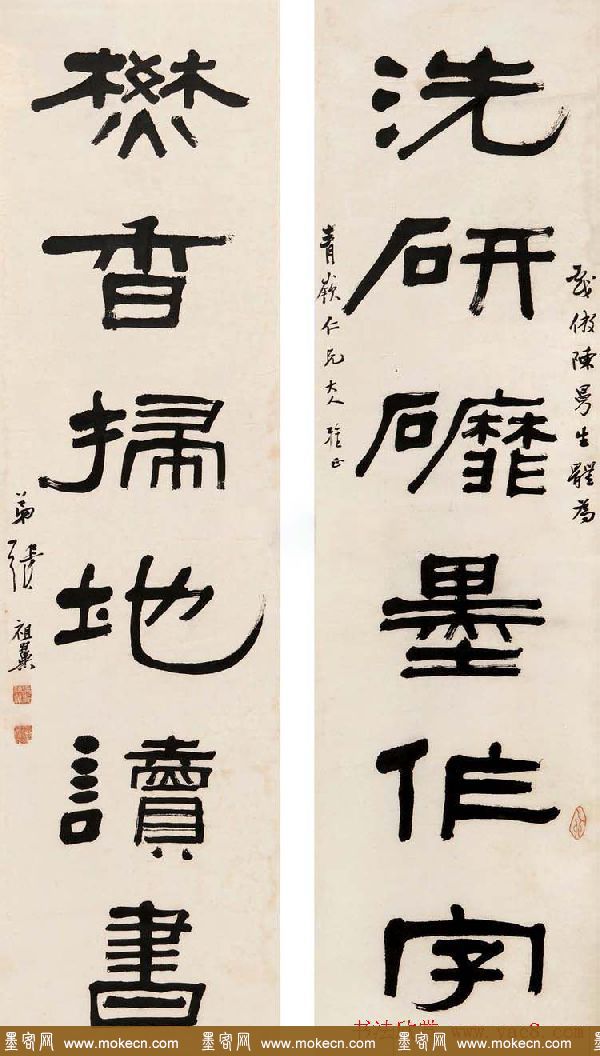 倣陳曼生體為
洗研䃺墨作字
青仁兄大人雅正
燓香掃地讀書
弟張祖翼
书法欣赏 www.yac8.com
墨客网 www.mokecn.com 墨客网 www.mokecn.com 墨客网 www.mokecn.com